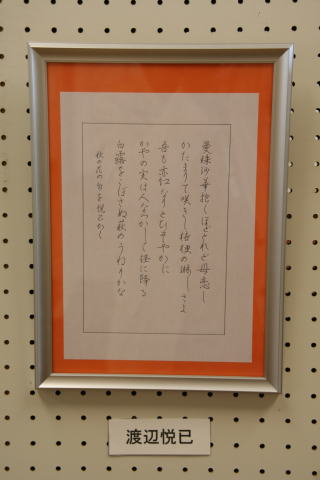 曼珠沙華抱くほどとれど母恋し
かたまりて咲きし桔梗の淋しさよ
吾も亦紅なりとひそやかに
かやの実は人なつかしく径に降る
白露をこぼさぬ萩のうねりかな
秋の花の句を悦己かく
渡辺悦己